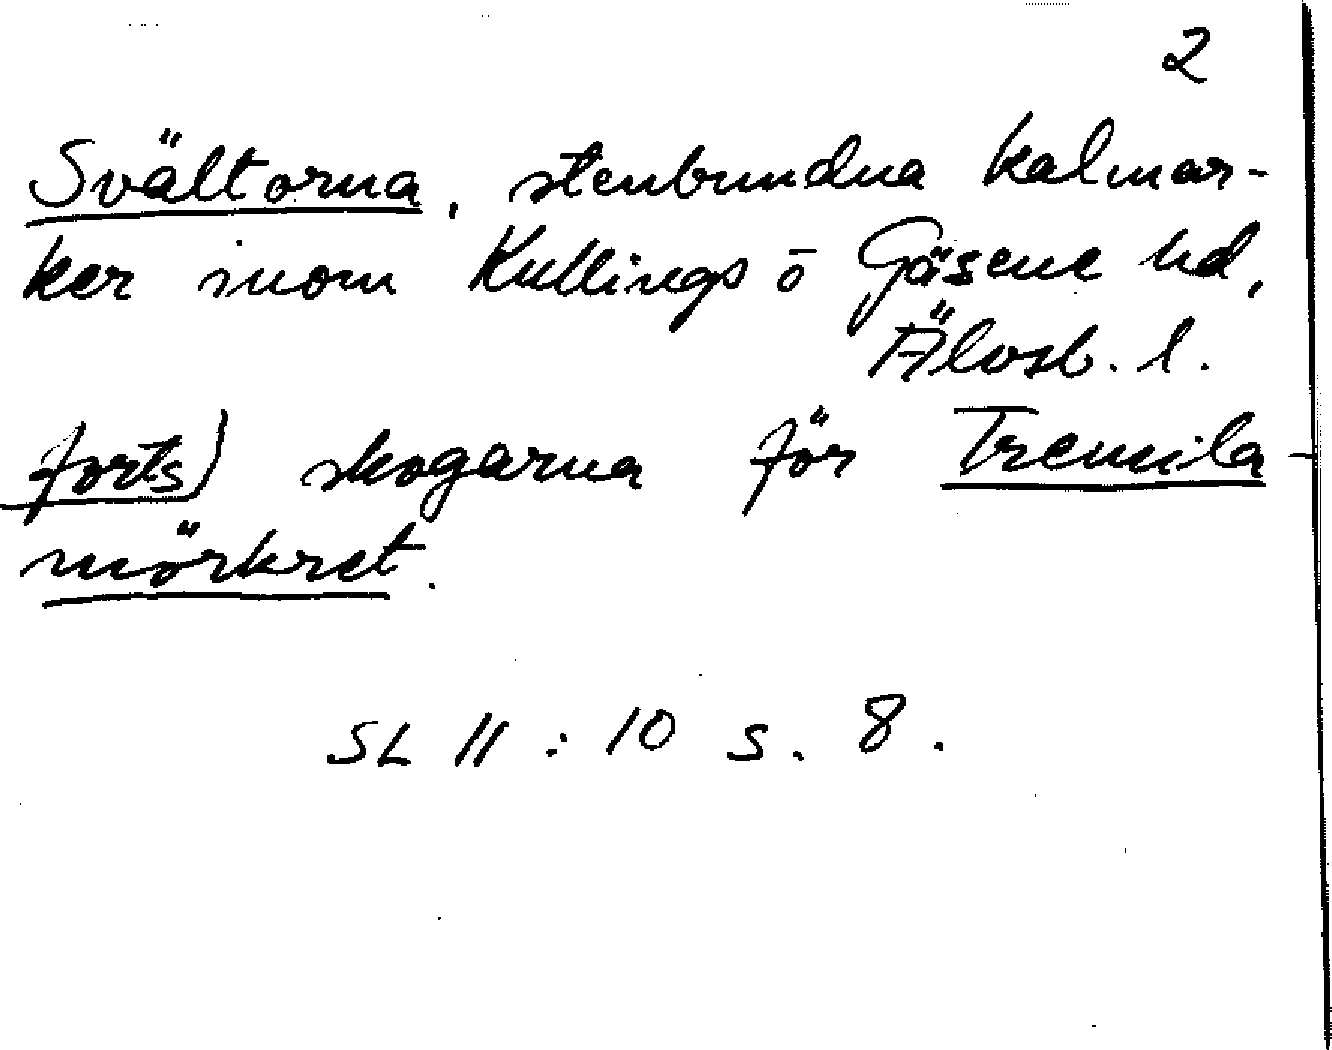 2
Svältorna, stenbundna kalmar-
ker inom Kullings ō Gäsene hd,
Älvsb. l.
forts) skogarna för Tremila-
mörkret.
SL 11:10 s. 8.